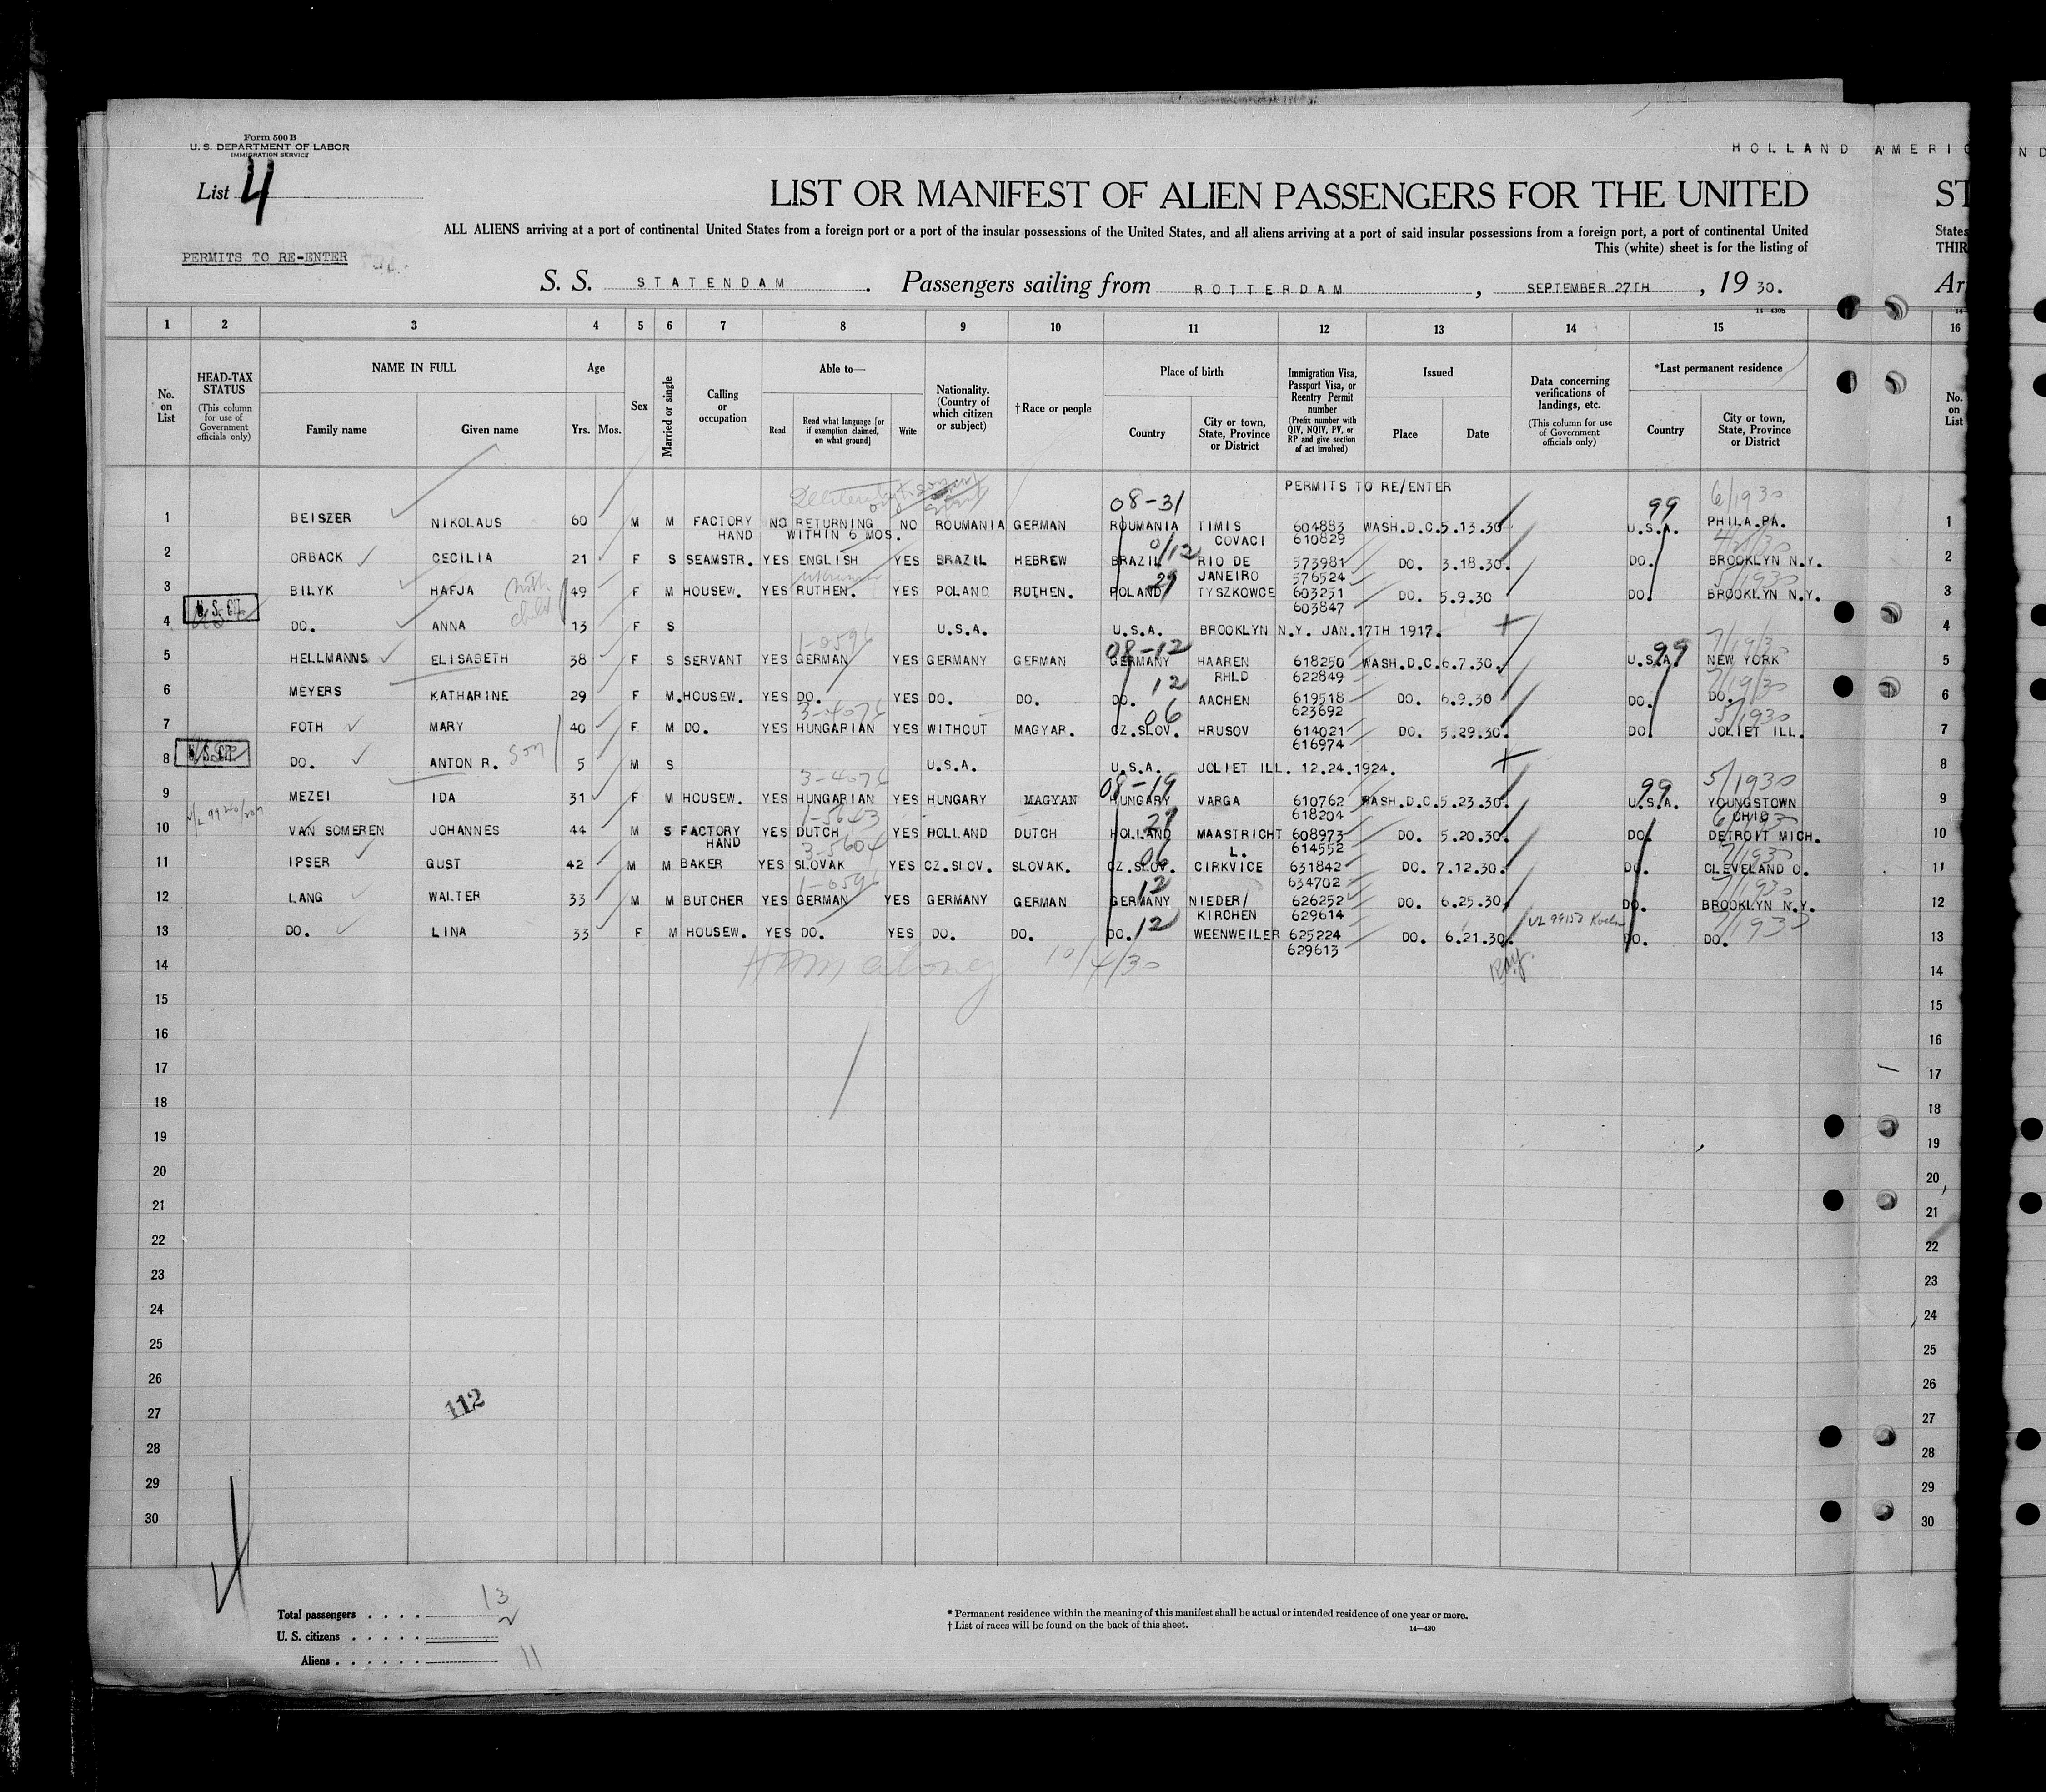 Form 500 B
U. S. DEPARTMENT OF LABOR
IMMIGRATION SERVICE
HOLLAND AMERIC
ND
List 4
LIST OR MANIFEST OF ALIEN PASSENGERS FOR THE UNITED
ST
ALL ALIENS arriving at a port of continental United States from a foreign port or a port of the insular possessions of the United States, and all aliens arriving at a port of said insular possessions from a foreign port, a port of continental United
States
This (white) sheet is for the listing of
THIR
PERMITS TO RE-ENTER
S. S. STATENDAM. Passengers sailing from ROTTERDAM, SEPTEMBER 27TH, 19 30.
Ar
14—430b
1 2 3 4 5 6 7 8 9 10 11 12 13 14 15 16
No. on List
HEAD-TAX STATUS (This column for use of Government officials only)
NAME IN FULL
Family name
Given name
Age
Yrs. Mos.
Sex
Married or single
Calling or occupation
Able to—
Read
Read what language [or if exemption claimed, on what ground]
Write
Nationality. (Country of which citizen or subject)
† Race or people
Place of birth
Country
City or town, State, Province or District
Immigration Visa, Passport Visa, or Reentry Permit number (Prefix number with QIV, NQIV, PV, or RP and give section of act involved)
Issued
Place
Date
Data concerning verifications of landings, etc. (This column for use of Government officials only)
*Last permanent residence
Country
City or town, State, Province or District
No. on List
PERMITS TO RE/ENTER
08-31 99 6/1930
1 BEISZER NIKOLAUS 60 M M FACTORY HAND NO RETURNING WITHIN 6 MOS. NO ROUMANIA GERMAN ROUMANIA TIMIS COVACI 604883 610829 WASH.D.C. 5.13.30 U.S.A. PHILA.PA. 1
0/12
2 ORBACK CECILIA 21 F S SEAMSTR. YES ENGLISH YES BRAZIL HEBREW BRAZIL RIO DE JANEIRO 573981 576524 DO. 3.18.30. DO. BROOKLYN N.Y. 2
29 5/1930
3 BILYK HAFJA 49 F M HOUSEW. YES RUTHEN. YES POLAND RUTHEN. POLAND TYSZKOWCE 603251 603847 DO. 5.9.30 DO. BROOKLYN N.Y. 3
U.S. CIT. child
4 DO. ANNA 13 F S U.S.A. U.S.A. BROOKLYN N.Y. JAN.17TH 1917. 4
1-0596 08-12 99 7/19/30
5 HELLMANNS ELISABETH 38 F S SERVANT YES GERMAN YES GERMANY GERMAN GERMANY HAAREN RHLD 618250 622849 WASH.D.C. 6.7.30. U.S.A. NEW YORK 5
12 7/19/30
6 MEYERS KATHARINE 29 F M. HOUSEW. YES DO. YES DO. DO. DO. AACHEN 619518 623692 DO. 6.9.30 DO. DO. 6
3-4076 06 5/1930
7 FOTH MARY 40 F M DO. YES HUNGARIAN YES WITHOUT MAGYAR. CZ.SLOV. HRUSOV 614021 616974 DO. 5.29.30. DO. JOLIET ILL. 7
U.S. CIT. Son
8 DO. ANTON R. 5 M S U.S.A. U.S.A. JOLIET ILL. 12.24.1924. 8
3-4076 08-19 99 5/1930
9 MEZEI IDA 31 F M HOUSEW. YES HUNGARIAN YES HUNGARY MAGYAN HUNGARY VARGA 610762 618204 WASH.D.C. 5.23.30. U.S.A. YOUNGSTOWN OHIO 9
1-5643 21
10 VAN SOMEREN JOHANNES 44 M S FACTORY HAND YES DUTCH YES HOLLAND DUTCH HOLLAND MAASTRICHT L. 608973 614552 DO. 5.20.30. DO. DETROIT MICH. 10
3-5604 06 7/1930
11 IPSER GUST 42 M M BAKER YES SLOVAK YES CZ.SLOV. SLOVAK. CZ.SLOV. CIRKVICE 631842 634702 DO. 7.12.30. DO. CLEVELAND O. 11
1-0596 12 7/1930
12 LANG WALTER 33 M M BUTCHER YES GERMAN YES GERMANY GERMAN GERMANY NIEDER/ KIRCHEN 626252 629614 DO. 6.25.30. DO. BROOKLYN N.Y. 12
12 7/1930
13 DO. LINA 33 F M HOUSEW. YES DO. YES DO. DO. DO. WEENWEILER 625224 629613 DO. 6.21.30. DO. DO. 13
14 10/4/30 14
15 15
16 16
17 17
18 18
19 19
20 20
21 21
22 22
23 23
24 24
25 25
26 26
27 112 27
28 28
29 29
30 30
Total passengers 13
U. S. citizens 2
Aliens 11
* Permanent residence within the meaning of this manifest shall be actual or intended residence of one year or more.
† List of races will be found on the back of this sheet.
14—430